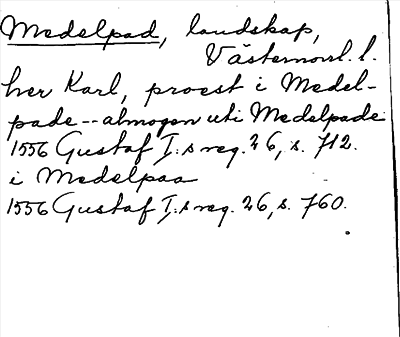 Medelpad, landskap,
Västernorrl. l.
her Karl, proest i Medel-
pade -- almogen uti Medelpade
1556 Gustaf I:s reg. 26, s. 712.
i Medelpaa
1556 Gustaf I:s reg. 26, s. 760.